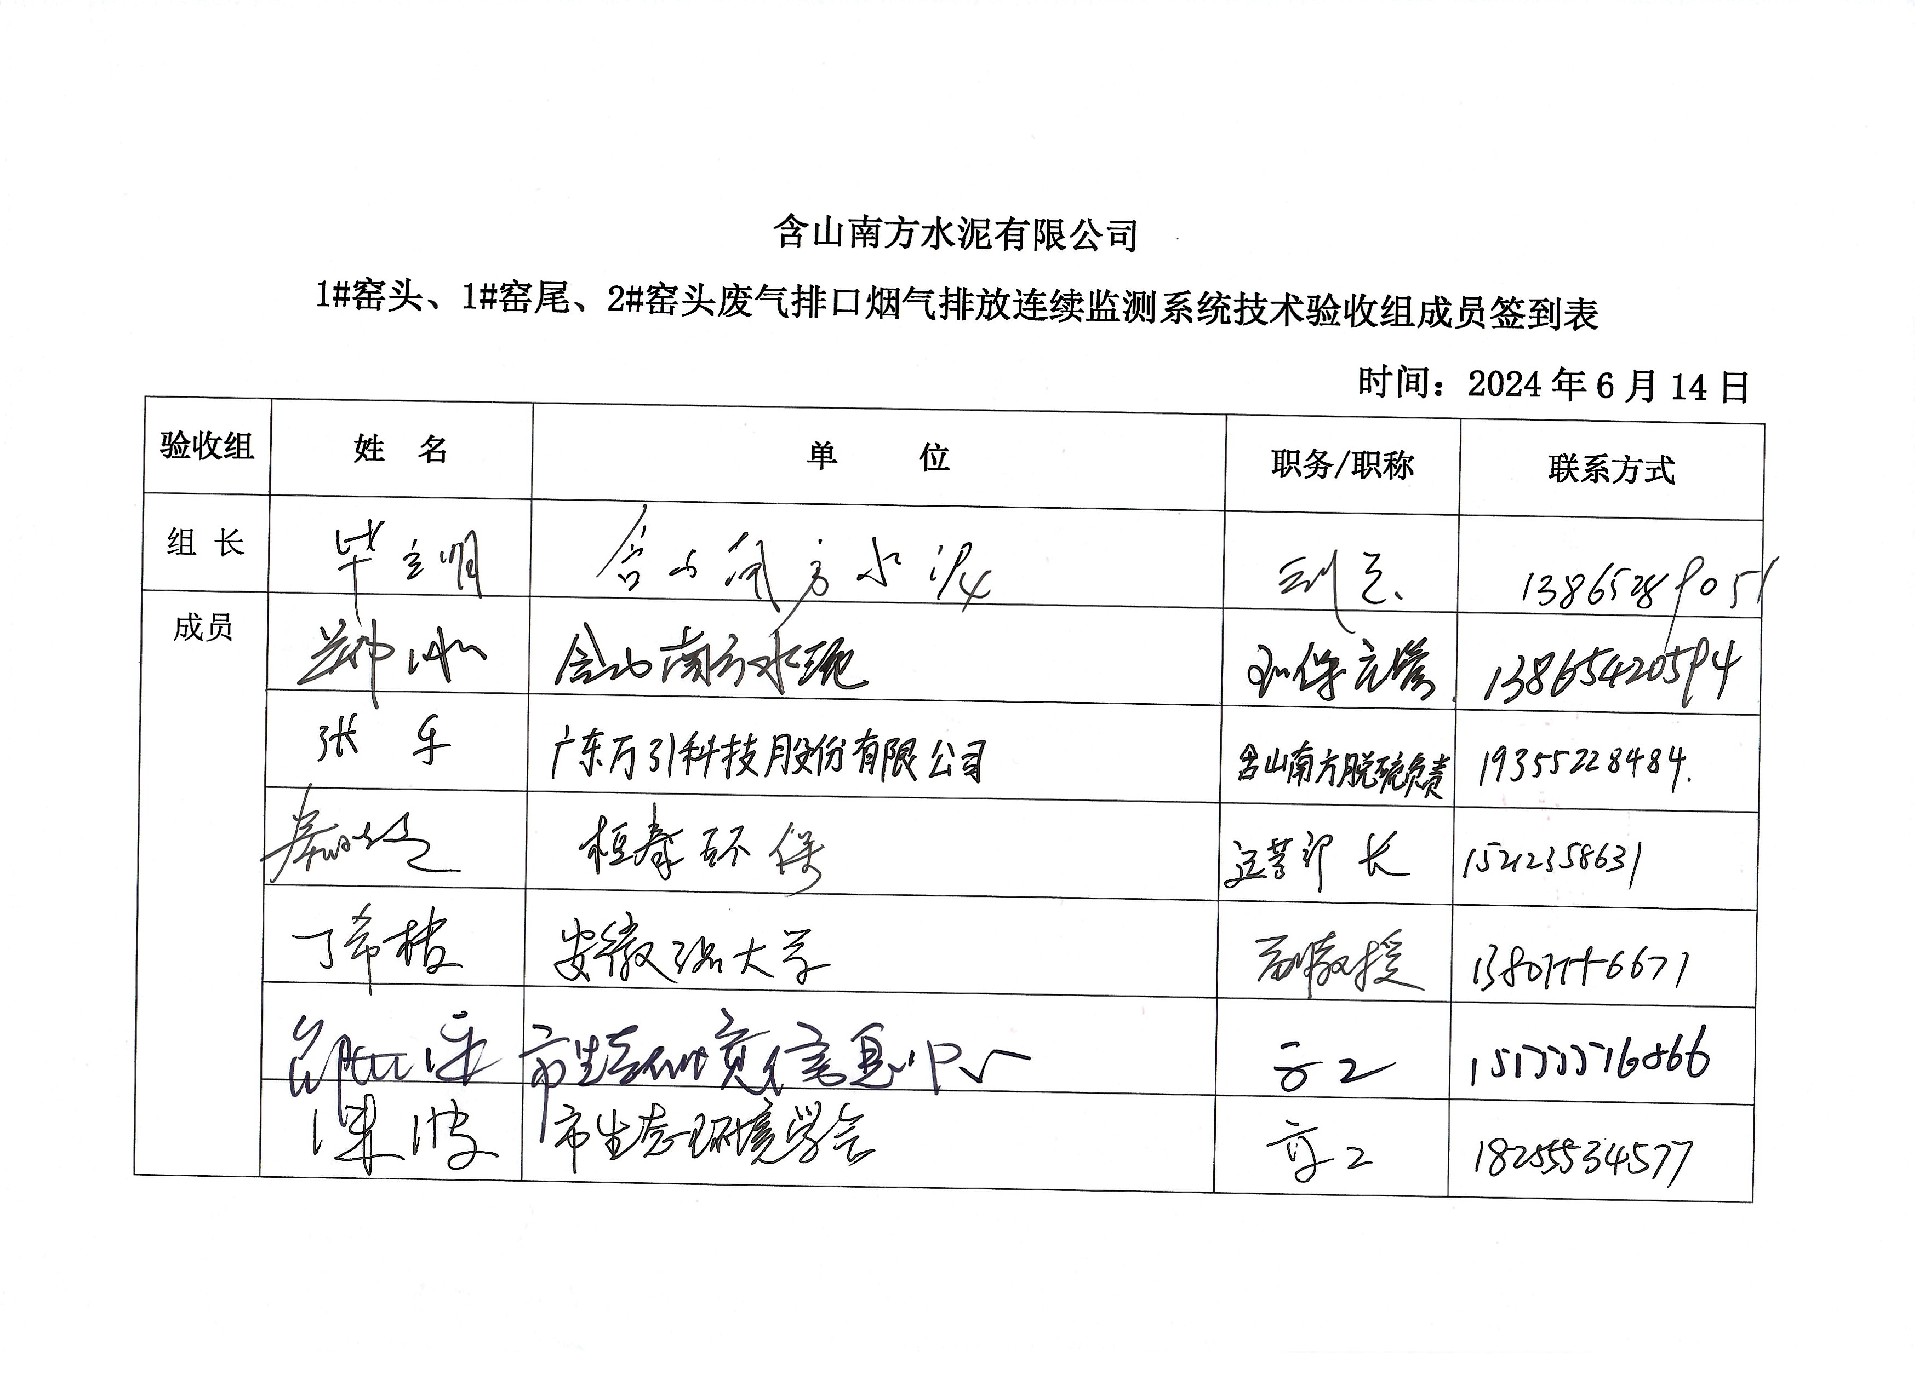 含山南方水泥有限公司
1#窑头、1#窑尾、2#窑头废气排口烟气排放连续监测系统技术验收组成员签到表
时间：2024年6月14日
验收组 姓 名 单 位 职务/职称 联系方式
组 长 毕立明 含山南方水泥 副总
成员 含山南方水泥 13865420594
张乐 广东万引科技股份有限公司 含山南方脱硫负责 19355228484.
桓泰环保 运营部长 15212358631
丁希楼 安徽工业大学 副教授
市生态环境信息中心 高工
梁波 市生态环境学会 高工 18255534577